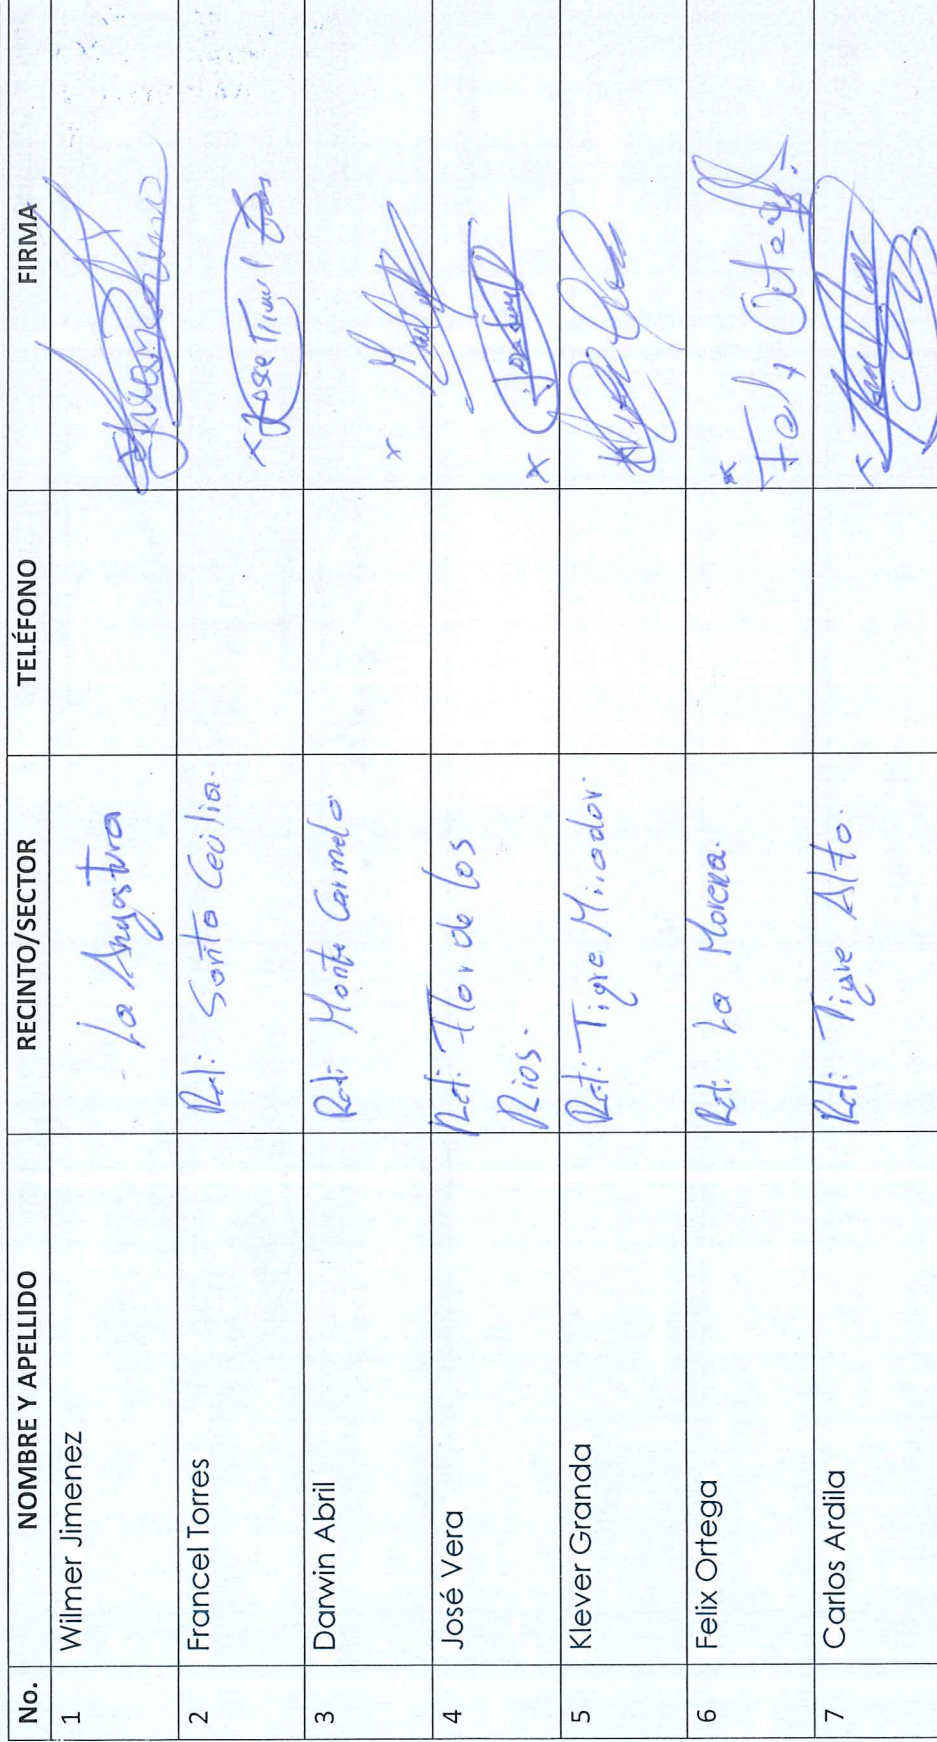 No. NOMBRE Y APELLIDO RECINTO/SECTOR TELÉFONO FIRMA
1 Wilmer Jimenez La Angostura
2 Francel Torres Rct: Santa Cecilia.
3 Darwin Abril Rct: Monte Carmelo
4 José Vera Rct: Flor de los
Rios.
5 Klever Granda Rct: Tigre Mirador.
6 Felix Ortega Rct: La Morena. x Felix Ortega
7 Carlos Ardila Rct: Tigre Alto.